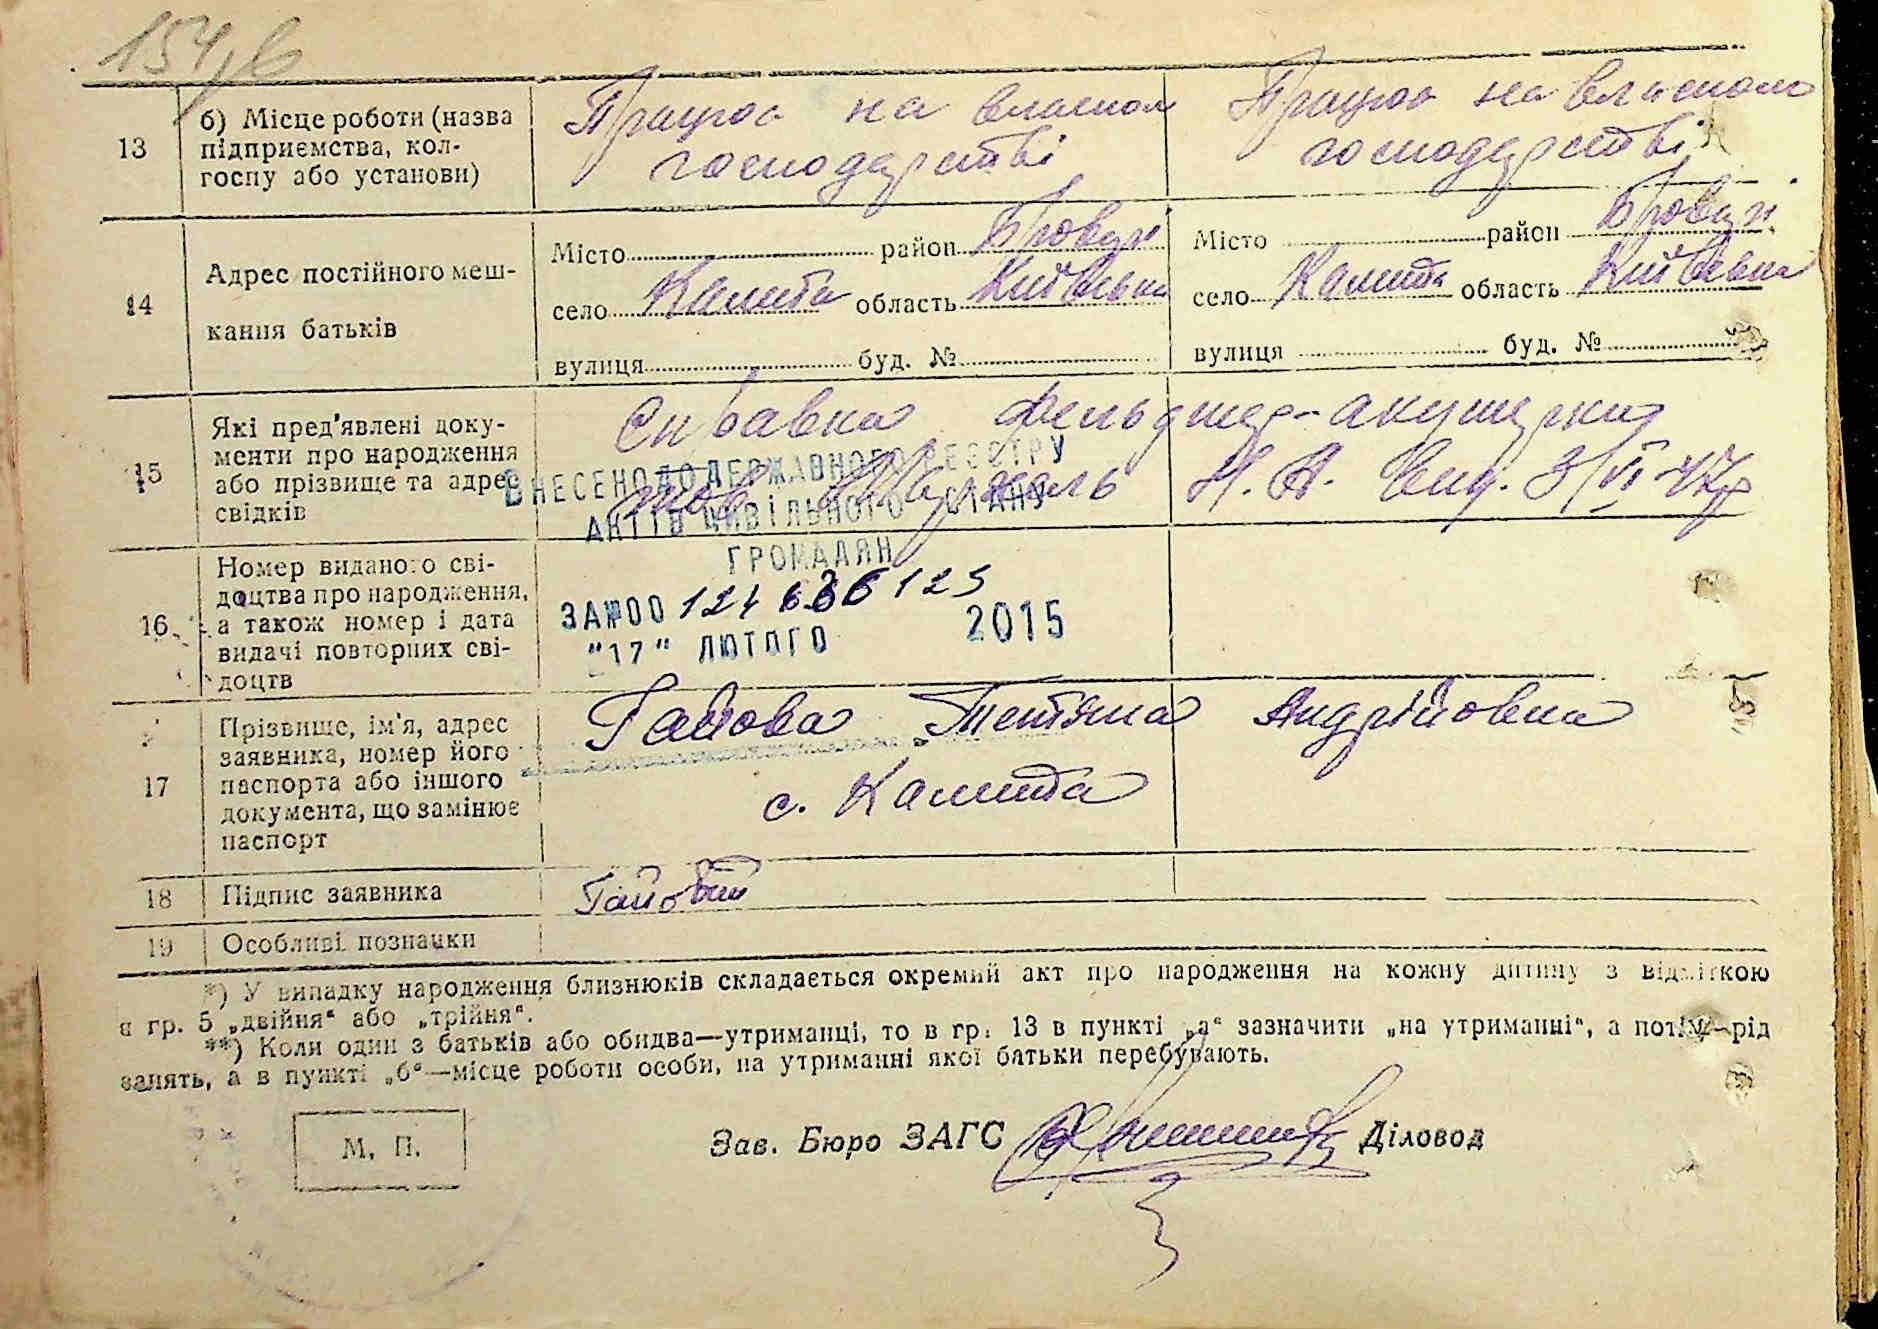 154
13
б) Місце роботи (назва
підприємства, кол-
госпу або установи)
Працює на власном
господарстві
Працює на власном
господарстві
14
Адрес постійного меш-
кання батьків
Місто район Бровари
село Калита область Київська
вулиця буд. №
Місто район Бровари
село Калита область Київська
вулиця буд. №
15
Які пред'явлені доку-
менти про народження
або прізвище та адрес
свідків
Справка фельдшер-акушерки
тов. Н. А. вид. 3/VI 47р
ВНЕСЕНО ДО ДЕРЖАВНОГО РЕЄСТРУ
АКТІВ ЦИВІЛЬНОГО СТАНУ
ГРОМАДЯН
16
Номер виданого сві-
доцтва про народження,
а також номер і дата
видачі повторних сві-
доцтв
ЗА №00
"17" ЛЮТОГО 2015
17
Прізвище, ім'я, адрес
заявника, номер його
паспорта або іншого
документа, що замінює
паспорт
Гайова Тетяна Андріївна
с. Калита
18
Підпис заявника
19
Особливі позначки
*) У випадку народження близнюків складається окремий акт про народження на кожну дитину з відміткою
в гр. 5 „двійня“ або „трійня“.
**) Коли один з батьків або обидва—утриманці, то в гр. 13 в пункті „а“ зазначити „на утриманні“, а потім—рід
занять, а в пункті „б“—місце роботи особи, на утриманні якої батьки перебувають.
М. П.
Зав. Бюро ЗАГС Діловод